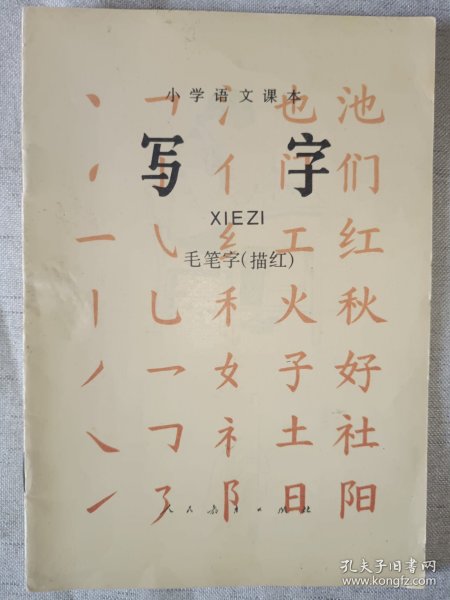 小学语文课本
丶 ㇖ 氵 也 池
写字
亻 门 们
XIEZI
一 ㇂ 纟 工 红
毛笔字(描红)
丨 乚 禾 火 秋
丿 ㇀ 女 子 好
㇏ 𠃌 礻 土 社
㇀ ㇌ 阝 日 阳
人民教育出版社
孔夫子旧书网
www.kongfz.com